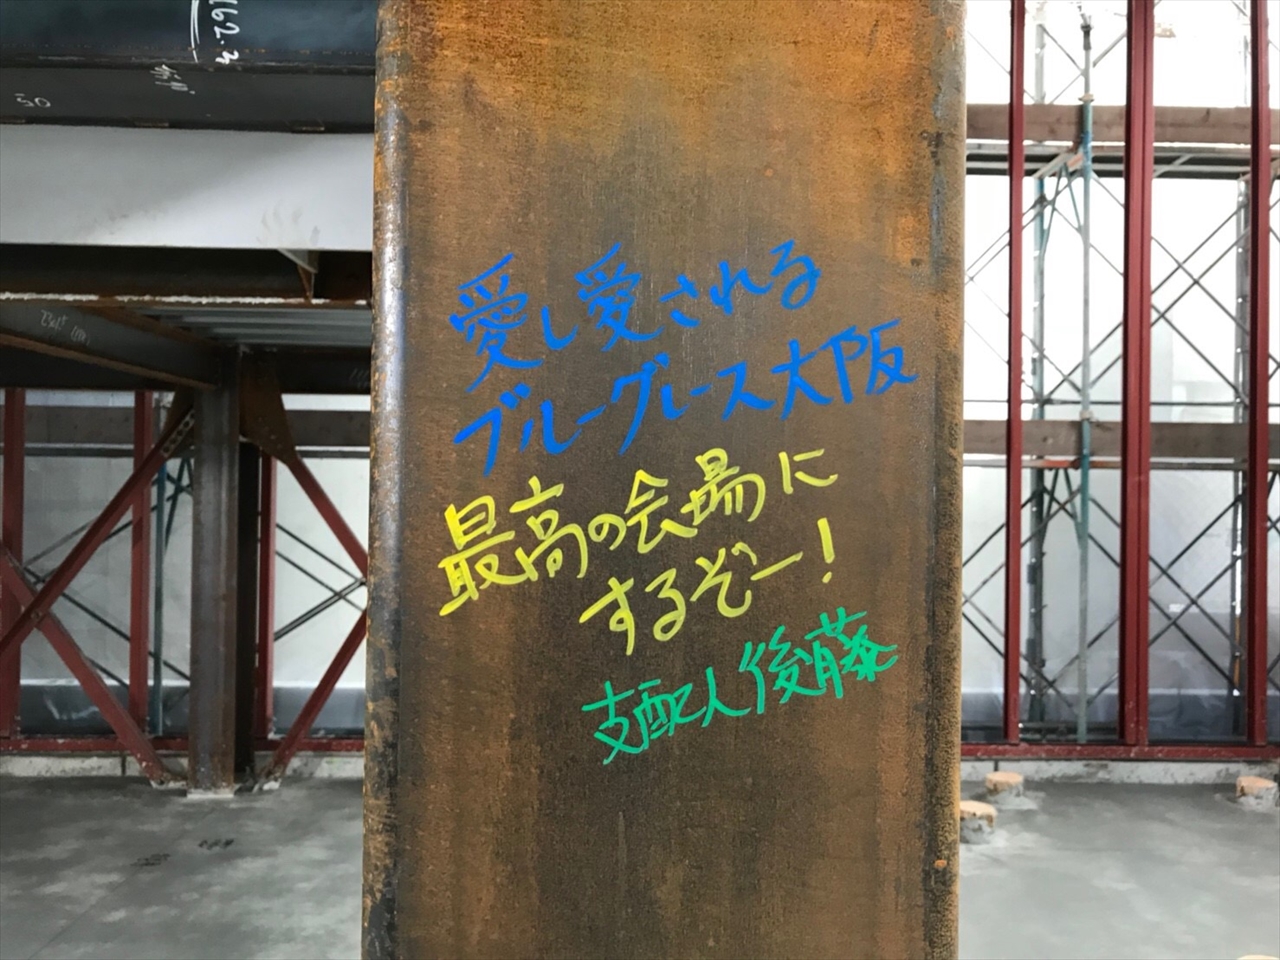 162.3
50
愛し愛される
ブルーグレース大阪
最高の会場に
するぞー!
支配人後藤